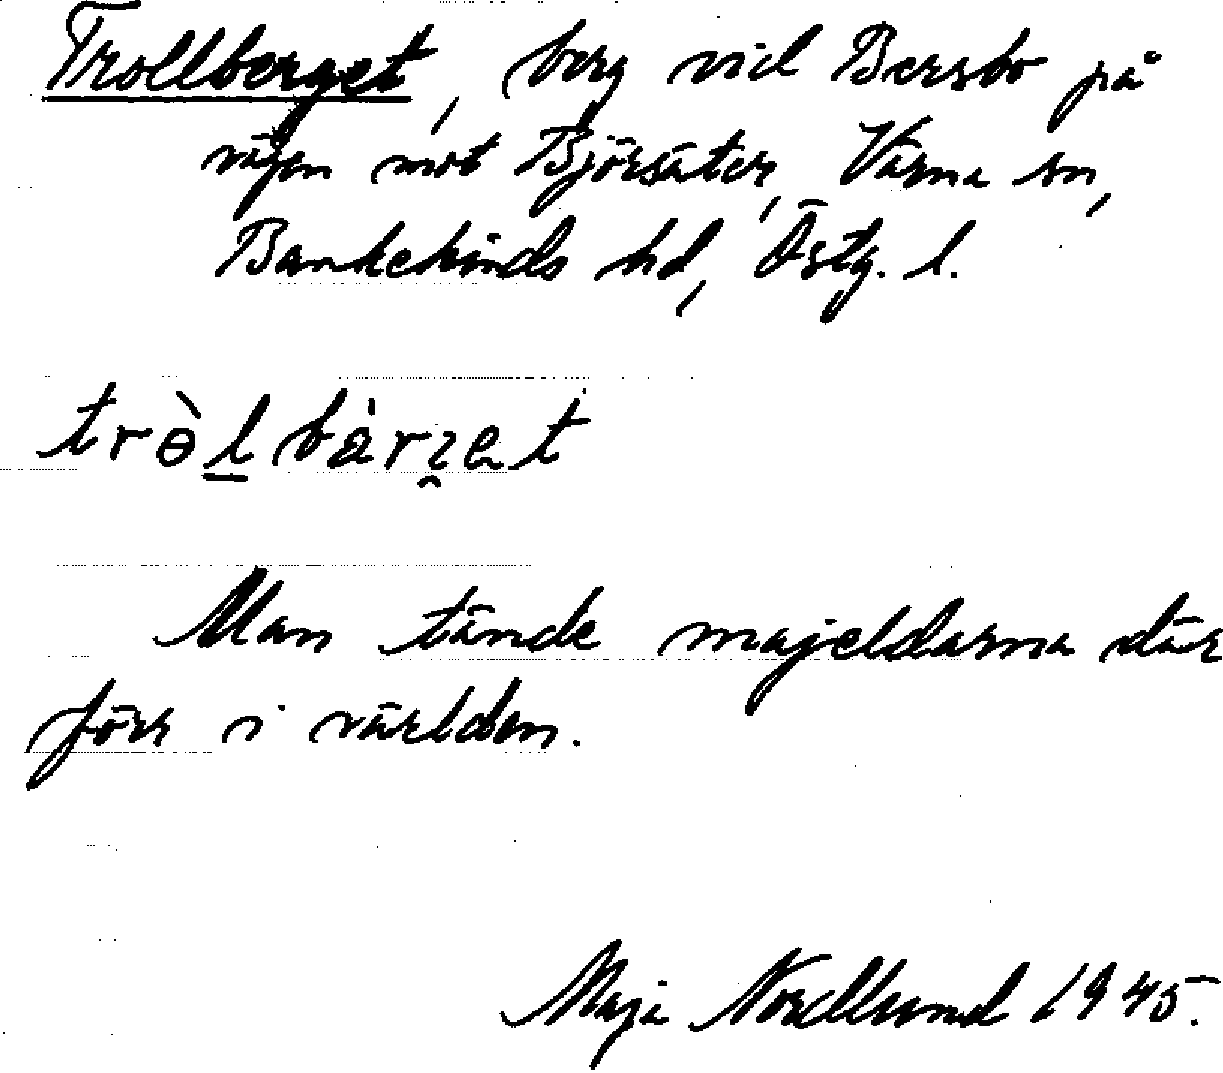 Trollberget, berg vid Bersbo på
vägen mot Björsäter, Värna sn,
Bankekinds hd, Östg. l.
trɵ̀l̲bàrʒ̯et
Man tände majeldarna där
förr i världen.
Maja Nordlund 1945.